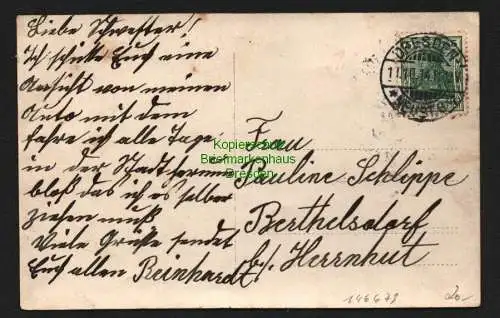 Liebe Schwester!
Ich schicke Euch eine
Ansicht von meinen
Auto mit dem
fahre ich alle Tage
in der Stadt herum
bloß das ich es selber
ziehen muß
Viele Grüße sendet
Euch allen Reinhardt
Frau
Pauline Schlippe
Berthelsdorf
b/. Herrnhut
DRESDEN
Kopierschutz
Briefmarkenhaus
Dresden
146679